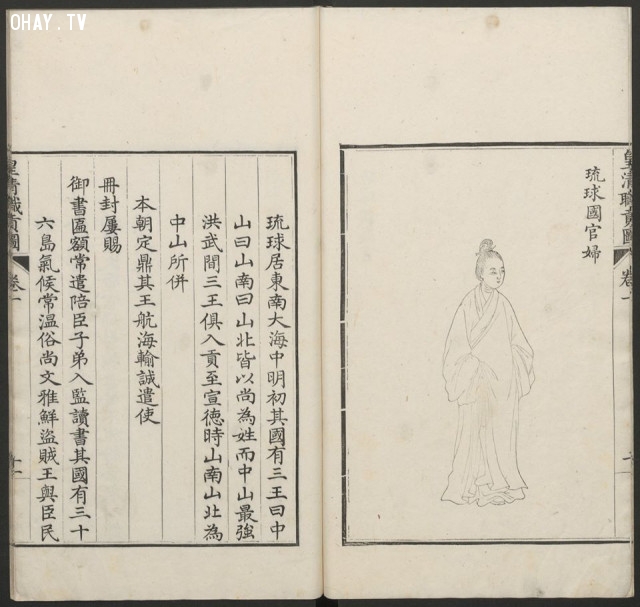 OHAY.TV
皇清職貢圖
卷一
琉球國官婦
琉球居東南大海中明初其國有三王曰中
山曰山南曰山北皆以尚為姓而中山最強
洪武間三王俱入貢至宣德時山南山北為
中山所併
本朝定鼎其王航海輸誠遣使
冊封屢賜
御書匾額常遣陪臣子弟入監讀書其國有三十
六島氣候常溫俗尚文雅鮮盜賊王與臣民
皇清職貢圖
卷一